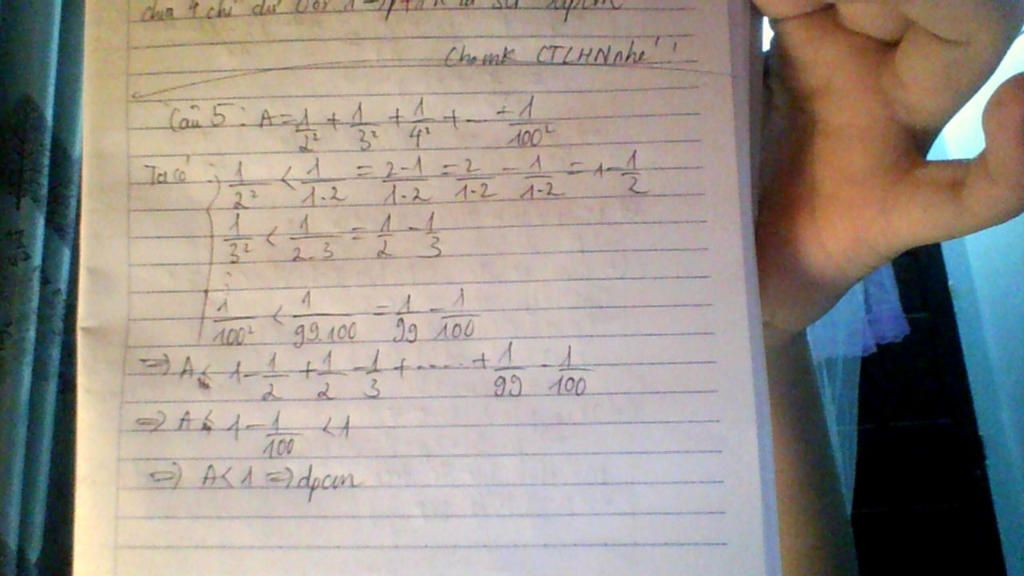 chia 4 chỉ dư
Câu 5: A = 1/2² + 1/3² + 1/4² + ... + 1/100²
Ta có: 1/2² < 1/1.2 = 2-1/1.2 = 2/1.2 - 1/1.2 = 1 - 1/2
1/3² < 1/2.3 = 1/2 - 1/3
⋮
1/100² < 1/99.100 = 1/99 - 1/100
=> A < 1 - 1/2 + 1/2 - 1/3 + ..... + 1/99 - 1/100
=> A < 1 - 1/100 < 1
=> A < 1 => dpcm